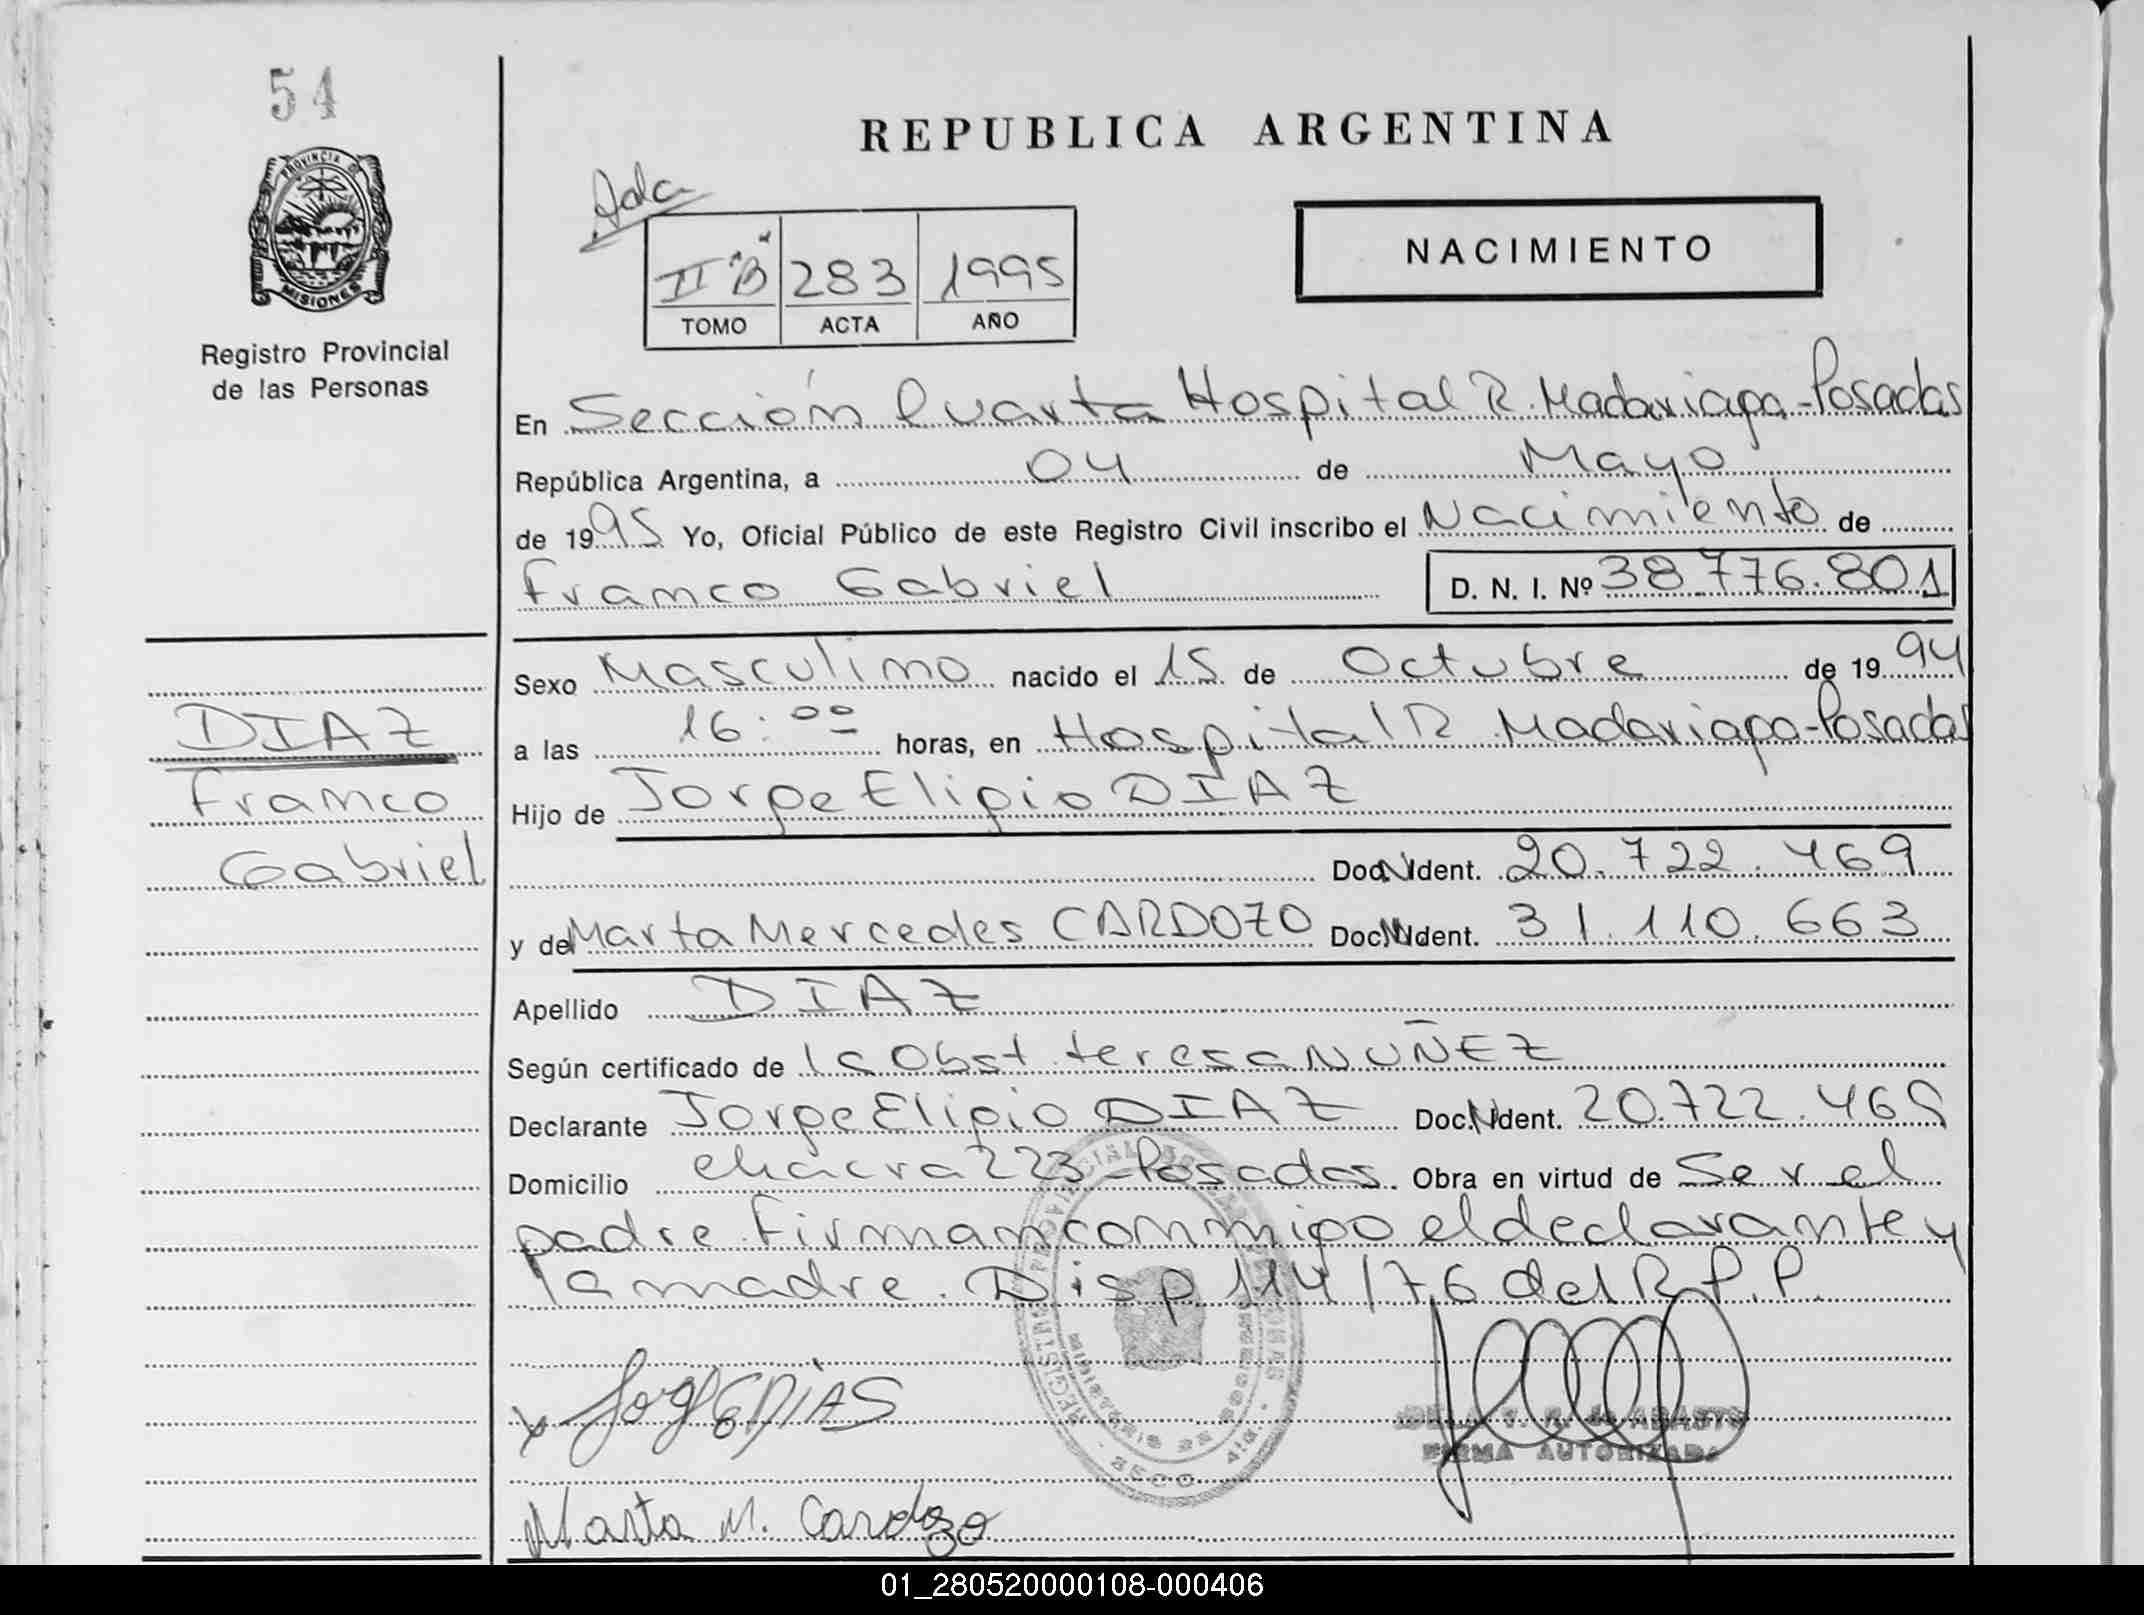 54
REPUBLICA ARGENTINA
PROVINCIA DE
MISIONES
Registro Provincial
de las Personas
Adc
II "B" 283 1995
TOMO ACTA AÑO
NACIMIENTO
En Sección Cuarta Hospital R. Madariaga-Posadas
República Argentina, a 04 de Mayo
de 1995 Yo, Oficial Público de este Registro Civil inscribo el Nacimiento de
Franco Gabriel D. N. I. Nº 38.776.801
Sexo Masculino nacido el 15 de Octubre de 1994
a las 16:00 horas, en Hospital R. Madariaga-Posadas
DIAZ
Franco
Gabriel
Hijo de Jorge Eligio DIAZ
Doc. N. Ident. 20.722.469
y de Marta Mercedes CARDOZO Doc. N. Ident. 31.110.663
Apellido DIAZ
Según certificado de la Obst. teresa NUÑEZ
Declarante Jorge Eligio DIAZ Doc. N. Ident. 20.722.469
Domicilio chacra 223-Posadas. Obra en virtud de Ser el
padre. Firman conmigo el declarante y
la madre. Disp 114/76 del R.P.P.
Jorge E DiAS
FIRMA AUTORIZADA
Marta M. Cardozo
01_280520000108-000406